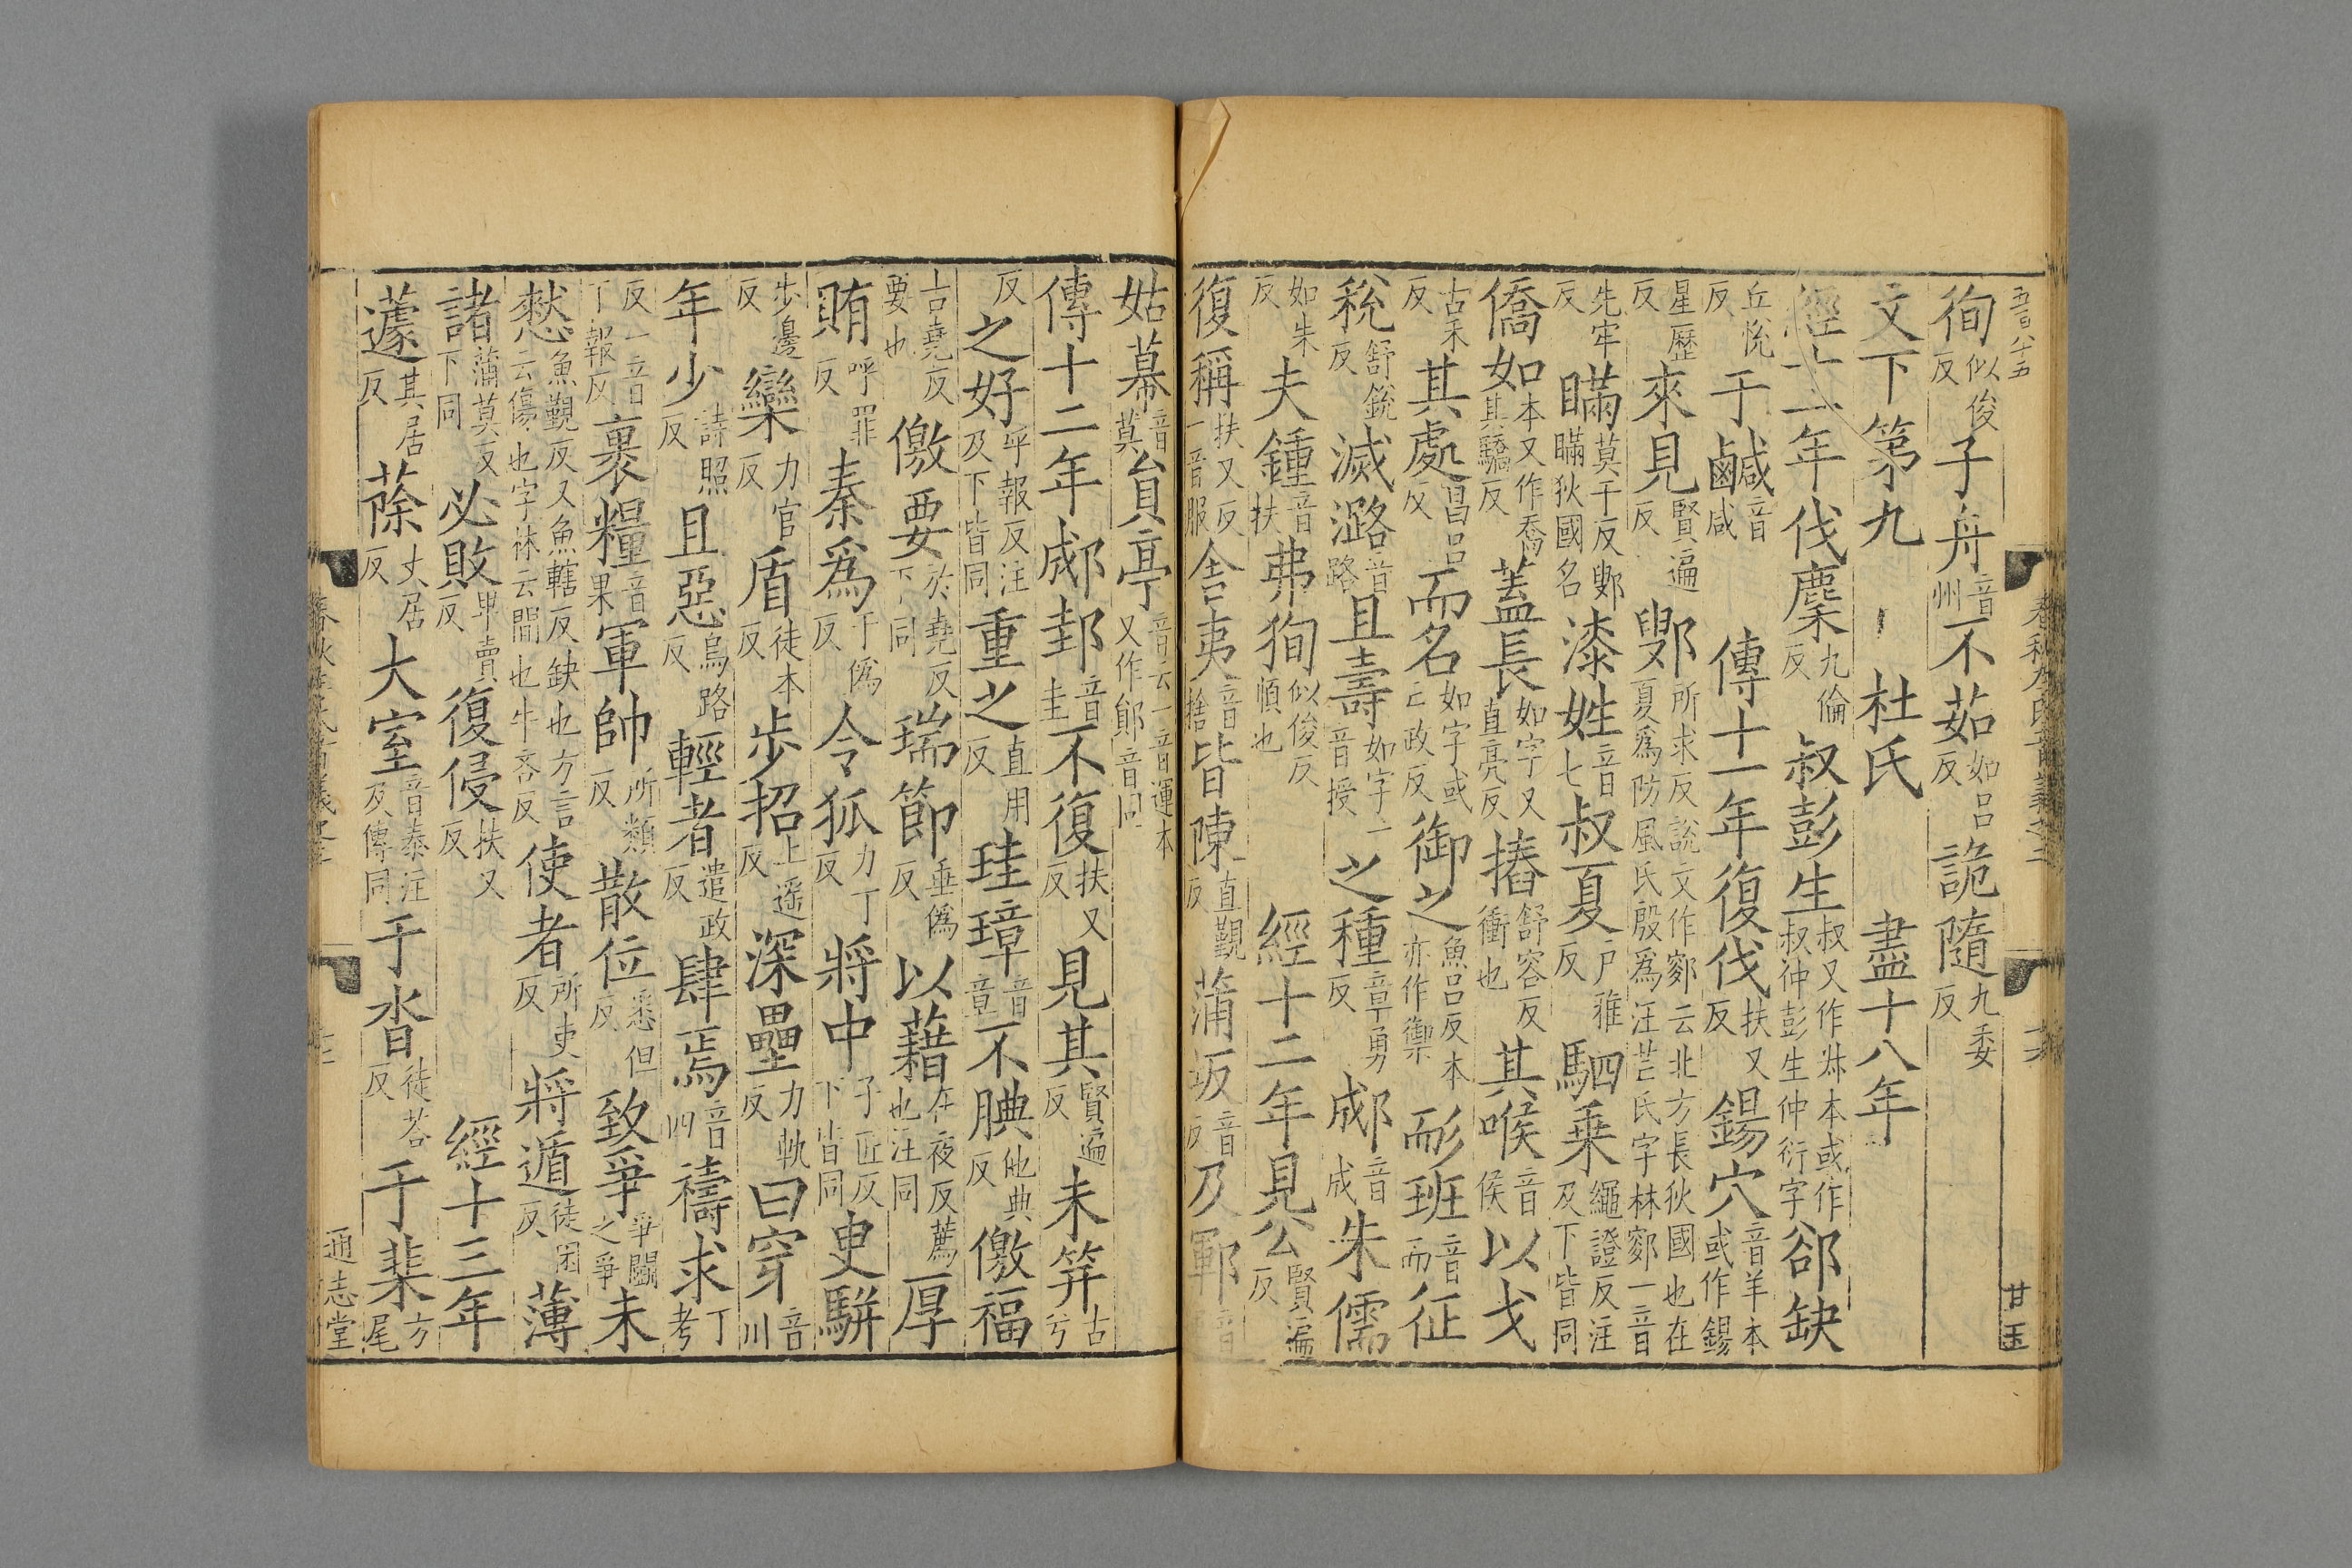 徇似俊反子舟音州不茹如呂反詭隨九委反
文下第九 杜氏 盡十八年
經十一年伐麇九倫反叔彭生叔又作尗本或作叔仲彭生仲衍字郤缺
丘悅反于鹹音咸 傳十一年復伐扶又反錫穴音羊本或作錫
星歷反來見賢遍反鄋所求反說文作鄋云北方長狄國也在夏為防風氏殷為汪芒氏字林鄋一音
先牢反瞞莫干反鄋瞞狄國名漆姓音七叔夏戶雅反駟乗繩證反注及下皆同
僑如本又作喬其驕反蓋長如字又直亮反摏舒容反衝也其喉音侯以戈
古禾反其處昌呂反而名如字或亡政反御之魚呂反本亦作禦耏班音而征
稅舒銳反滅潞音路且壽如字一音授之種章勇反郕音成朱儒
如朱反夫鍾音扶弗狥似俊反順也 經十二年見公賢遍反
復稱扶又反一音服舍夷音捨皆陳直覲反蒲坂音反及鄆音
姑幕音莫貟亭音云一音運本又作鄖音同
傳十二年郕邽音圭不復扶又反見其賢遍反未筓古兮
反之好呼報反注及下皆同重之直用反珪璋音章不腆他典反儌福
古堯反要也儌要於堯反下同瑞節垂偽反以藉在夜反薦也注同厚
賄呼罪反秦為于偽反令狐力丁反將中子匠反下皆同史騈
步邊反欒力官反盾徒本反步招上遥反深壘力軌反曰穿音川
年少詩照反且惡烏路反輕者遣政反肆焉音四禱求丁考
反一音丁報反裹糧音果軍帥所類反散位悉但反致爭爭鬭之爭未
憖魚覲反又魚轄反缺也方言云傷也字林云閒也牛吝反使者所吏反將遁徒困反薄
諸蒲莫反下同必敗卑賣反復侵扶又反 經十三年
蘧其居反蒢丈居反大室音泰注及傳同于沓徒荅反于棐方尾
通志堂